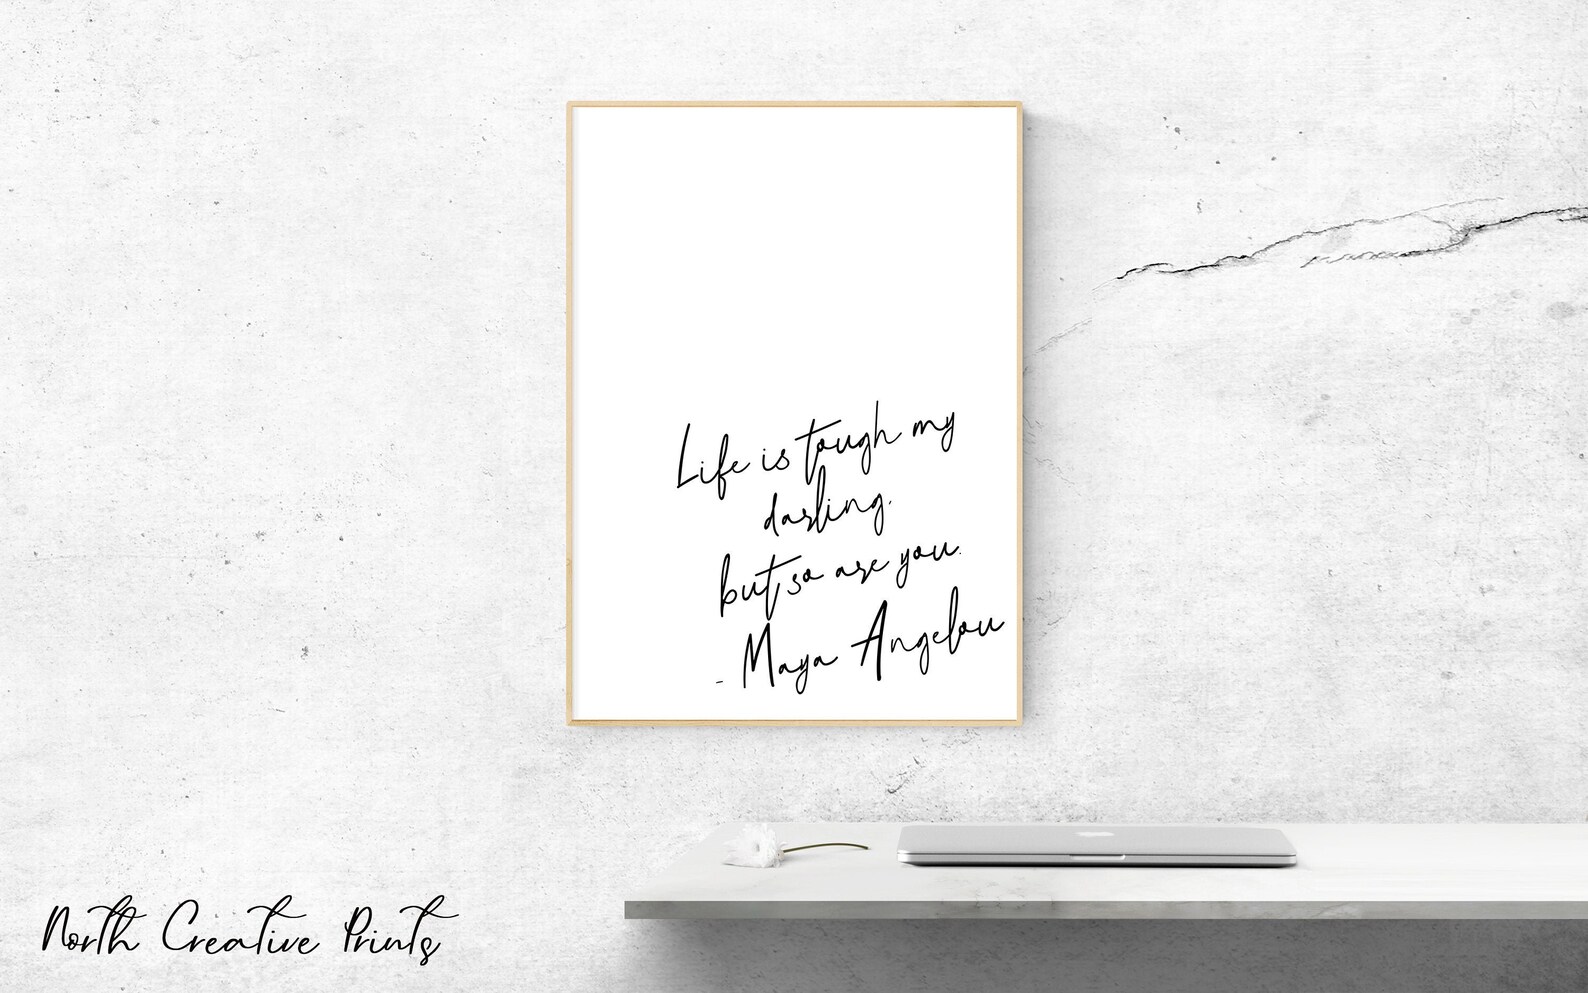 Life is tough my
darling,
but so are you.
- Maya Angelou
North Creative Prints